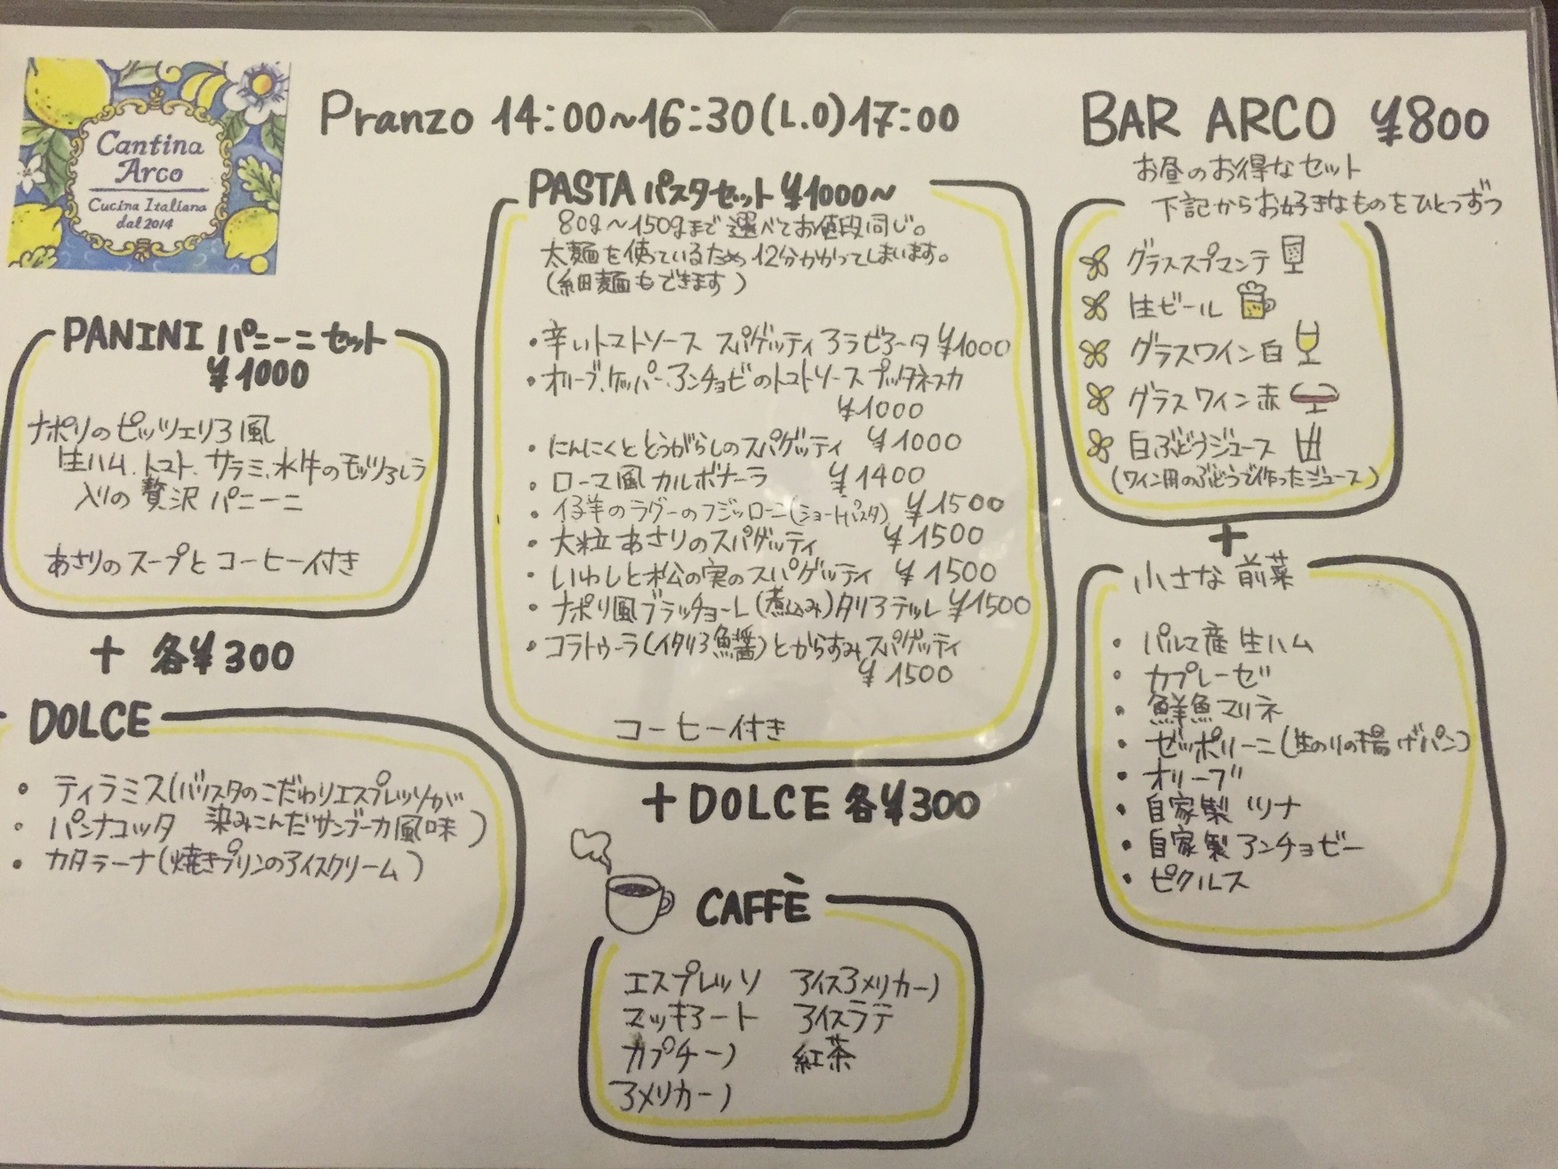 Cantina
Arco
Cucina Italiana
dal 2014
Pranzo 14:00~16:30(L.O)17:00
PANINI パニーニセット
¥1000
ナポリのピッツェリア風
生ハム、トマト、サラミ、水牛のモッツァレラ
入りの贅沢パニーニ
あさりのスープとコーヒー付き
+ 各¥300
DOLCE
・ティラミス(バリスタのこだわりエスプレッソが
染みこんだサンブーカ風味)
・パンナコッタ
・カタラーナ(焼きプリンのアイスクリーム)
PASTA パスタセット ¥1000~
80g~150gまで選べてお値段同じ。
太麺を使っているため12分かかってしまいます。
(細麺もできます)
・辛いトマトソース スパゲッティアラビアータ ¥1000
・オリーブ、ケッパー、アンチョビのトマトソースプッタネスカ
¥1000
・にんにくととうがらしのスパゲッティ ¥1000
・ローマ風カルボナーラ ¥1400
・仔羊のラグーのフジッローニ(ショートパスタ) ¥1500
・大粒あさりのスパゲッティ ¥1500
・いわしと松の実のスパゲッティ ¥1500
・ナポリ風ブラッチョーレ(煮込み)タリアテッレ ¥1500
・コラトゥーラ(イタリア魚醤)とからすみスパゲッティ
¥1500
コーヒー付き
+DOLCE 各¥300
CAFFÈ
エスプレッソ アイスアメリカーノ
マッキアート アイスラテ
カプチーノ 紅茶
アメリカーノ
BAR ARCO ¥800
お昼のお得なセット
下記からお好きなものをひとつずつ
グラススプマンテ
生ビール
グラスワイン白
グラスワイン赤
白ぶどうジュース
(ワイン用のぶどうで作ったジュース)
+
小さな前菜
・パルマ産生ハム
・カプレーゼ
・鮮魚マリネ
・ゼッポリーニ(生のりの揚げパン)
・オリーブ
・自家製ツナ
・自家製アンチョビー
・ピクルス